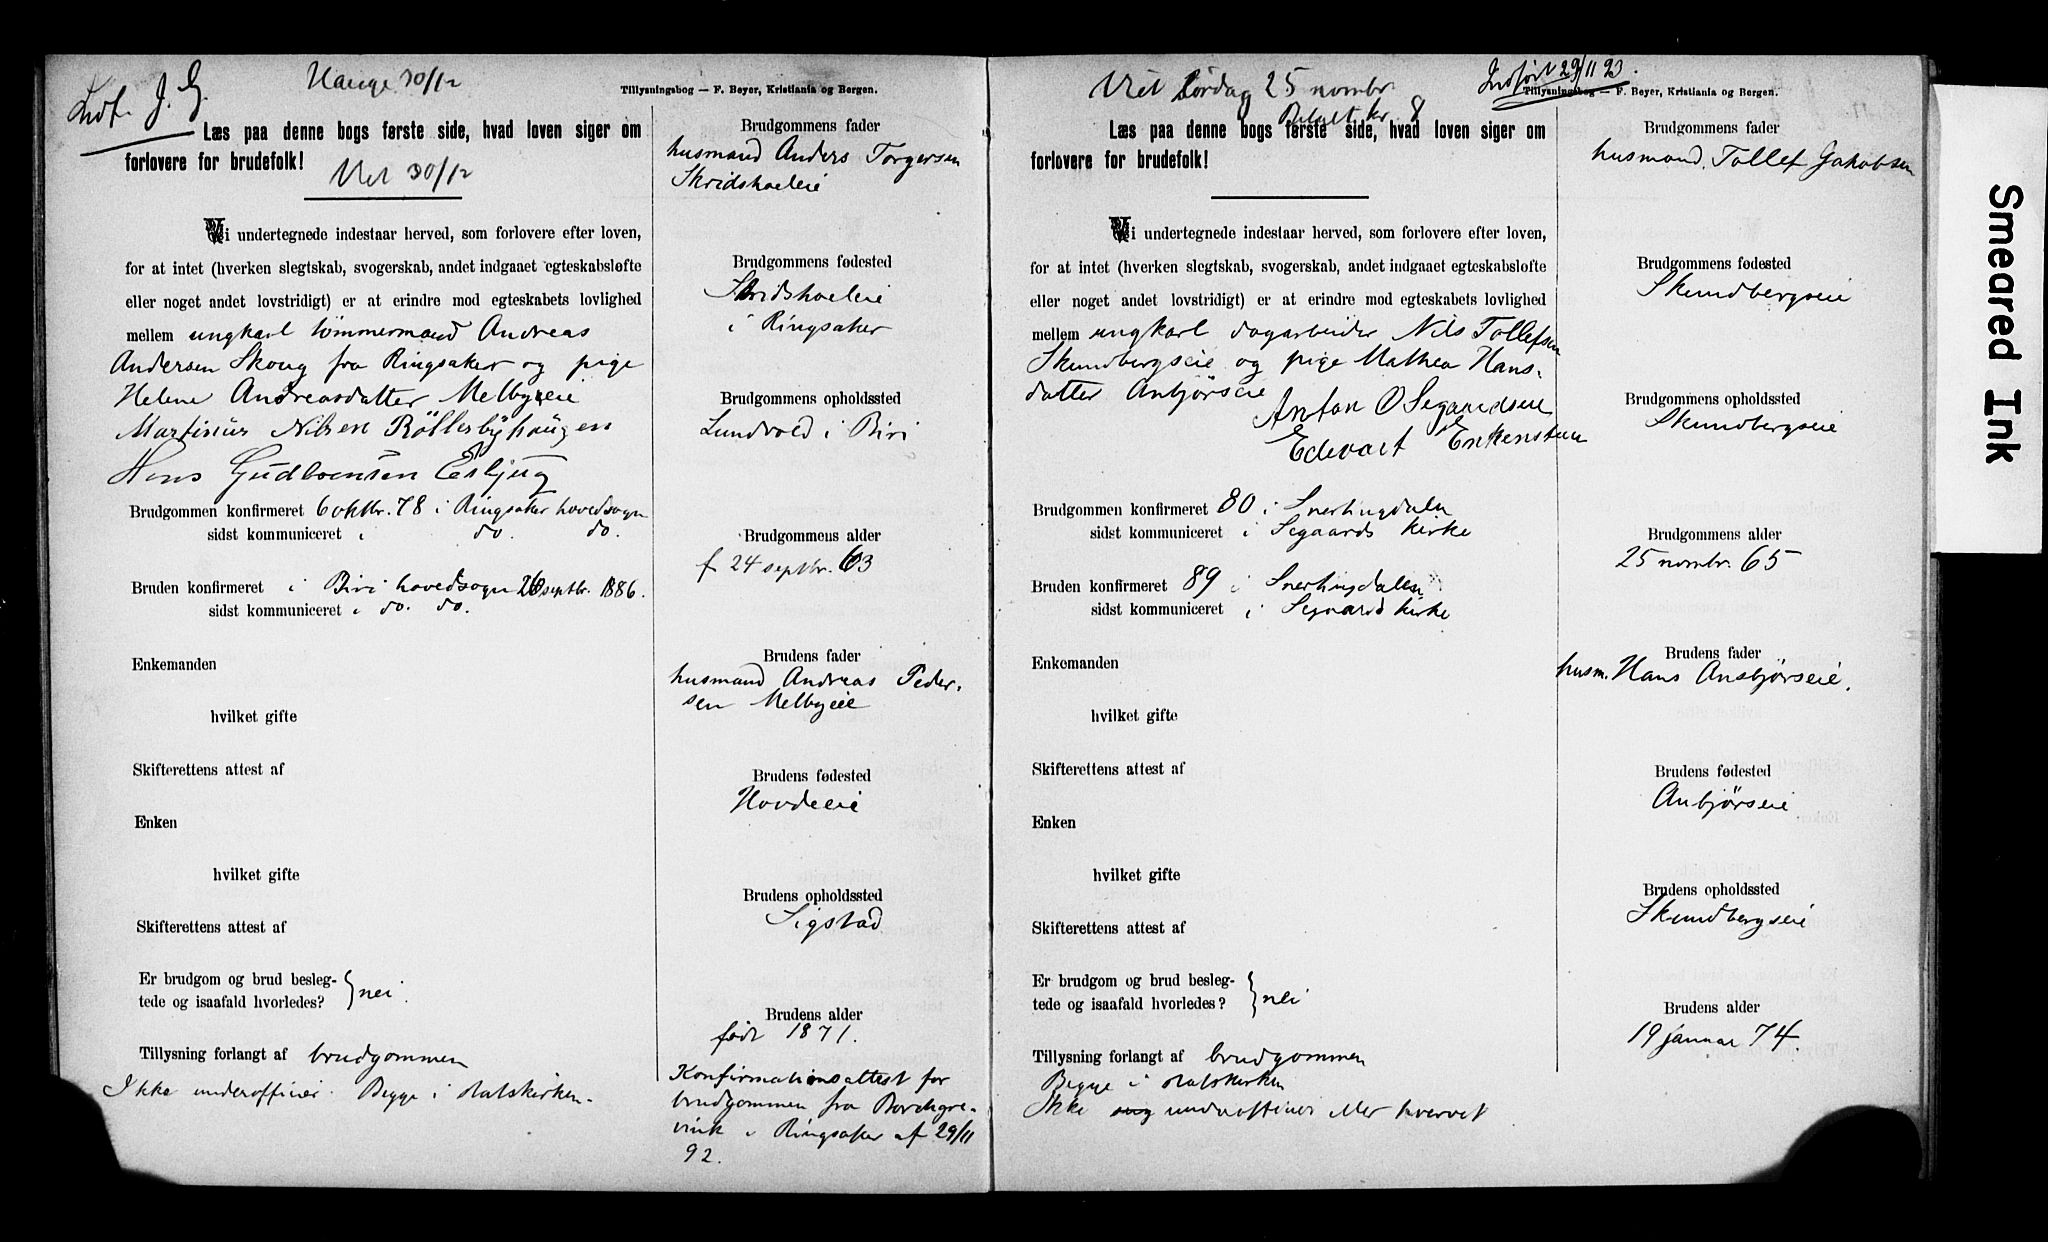 Indf. J. G.
Hauge 30/12
Tillysningsbog — F. Beyer, Kristiania og Bergen.
Læs paa denne bogs første side, hvad loven siger om
forlovere for brudefolk!
Viet 30/12
Vi undertegnede indestaar herved, som forlovere efter loven,
for at intet (hverken slegtskab, svogerskab, andet indgaaet egteskabsløfte
eller noget andet lovstridigt) er at erindre mod egteskabets lovlighed
mellem ungkarl tømmermand Andreas
Andersen Skoug fra Ringsaker og pige
Helene Andreasdatter Melbyeie
Martinus Nilsen Röllerbyhaugen
Hans Gudbrensen Esbjug
Brudgommen konfirmeret 6 oktbr. 78 i Ringsaker hovedsogn
sidst kommuniceret i do. do.
Bruden konfirmeret i Biri hovedsogn 26 septbr. 1886.
sidst kommuniceret i do. do.
Enkemanden
hvilket gifte
Skifterettens attest af
Enken
hvilket gifte
Skifterettens attest af
Er brudgom og brud besleg-
tede og isaafald hvorledes? } nei.
Tillysning forlangt af brudgommen
Ikke underofficer. Begge i statskirken.
Brudgommens fader
husmand Anders Torgersen
Skridshoeleie
Brudgommens fødested
Skridshoeleie
i Ringsaker
Brudgommens opholdssted
Lundvold i Biri
Brudgommens alder
f 24 septbr. 63
Brudens fader
husmand Andreas Peder-
sen Melbyeie
Brudens fødested
Hovdeeie
Brudens opholdssted
Sigstad
Brudens alder
født 1871.
Konfirmationsattest for
brudgommen fra Borchgre-
vink i Ringsaker af 29/11
92.
Viet Lørdag 25 novmbr.
Betalt kr. 8
Indført 29/11 93.
Tillysningsbog — F. Beyer, Kristiania og Bergen.
Læs paa denne bogs første side, hvad loven siger om
forlovere for brudefolk!
Vi undertegnede indestaar herved, som forlovere efter loven,
for at intet (hverken slegtskab, svogerskab, andet indgaaet egteskabsløfte
eller noget andet lovstridigt) er at erindre mod egteskabets lovlighed
mellem ungkarl dagarbeider Nils Tollefsen
Skundbergseie og pige Mathea Hans-
datter Anbjørseie
Anton O Segaardseie
Edevart Enkensteen
Brudgommen konfirmeret 80 i Snertingdalen
sidst kommuniceret i Segaards kirke
Bruden konfirmeret 89 i Snertingdalen
sidst kommuniceret i Segaards kirke
Enkemanden
hvilket gifte
Skifterettens attest af
Enken
hvilket gifte
Skifterettens attest af
Er brudgom og brud besleg-
tede og isaafald hvorledes? } nei
Tillysning forlangt af brudgommen
Begge i statskirken
Ikke underofficer eller hvervet
Brudgommens fader
husmand. Tollef Jakobsen
Brudgommens fødested
Skundbergseie
Brudgommens opholdssted
Skundbergseie
Brudgommens alder
25 novmbr. 65
Brudens fader
husm. Hans Ansbjørseie.
Brudens fødested
Anbjørseie
Brudens opholdssted
Skundbergseie
Brudens alder
19 januar 74.
Smeared Ink